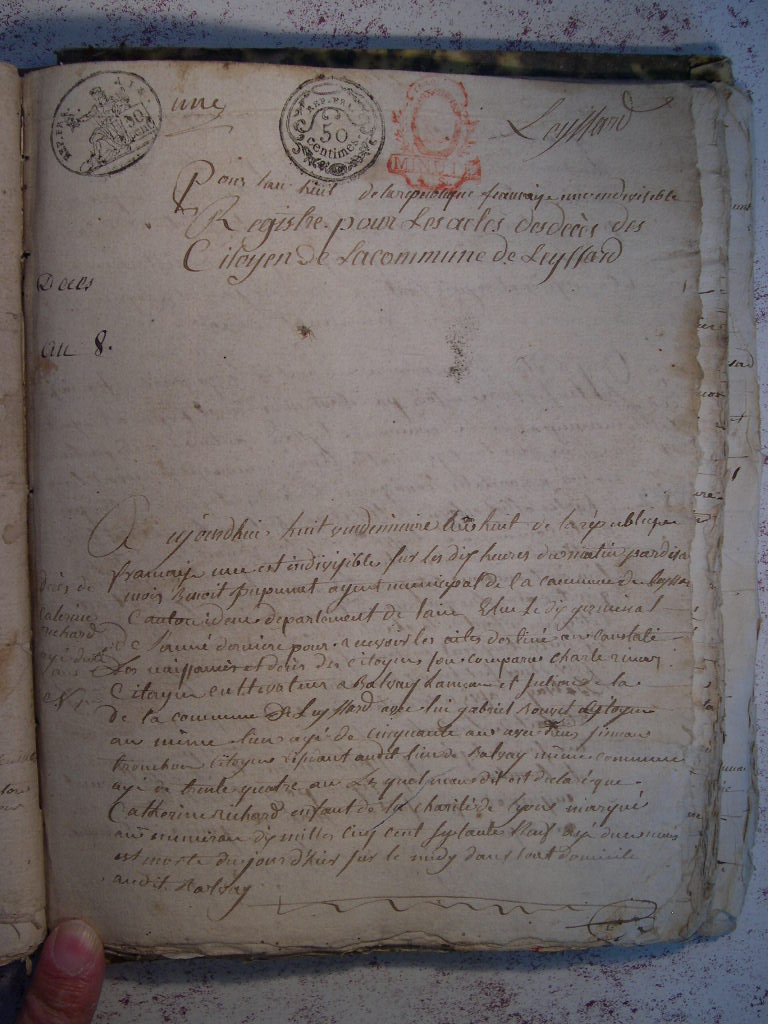 une
REP. FRA.
50
centimes
Leyssard
MINUTE
Pour lan huit de la republique francaise une indivisible
Registre pour Les actes des decès des
Citoyen De Lacommune de Leyssard
Deces
an 8.
Aujourdhui huit vendemiaire an huit de la république
francaise une est indivisible sur les dix heures du matin par de
mois Benoit agent municipal de la commune de Leyssar
Canton idem departement de lain Elu le dix germinal
de Lanné derniere pour recevoir les actes destiné au constaté
Les naissances et decès des citoyens son comparu charle
Citoyen cultivateur a Balvay hameau et de la
de la commune De Leyssard avec lui gabriel Bouvet citoyen
au même lieu agé de cinquante an avec eux
tronchon citoyen audit lieu de Balvay même commune
agé de trente quatre an Lesquel mon dit est declaré que
Catherine Richard enfant de la charité de Lyon marqué
au numeraux dix milles cinq cent septante neuf agé du mois
est morte du jour d'hier sur le midy dans domicile
audit Balvay
decès de
Caterine
richard
agé de